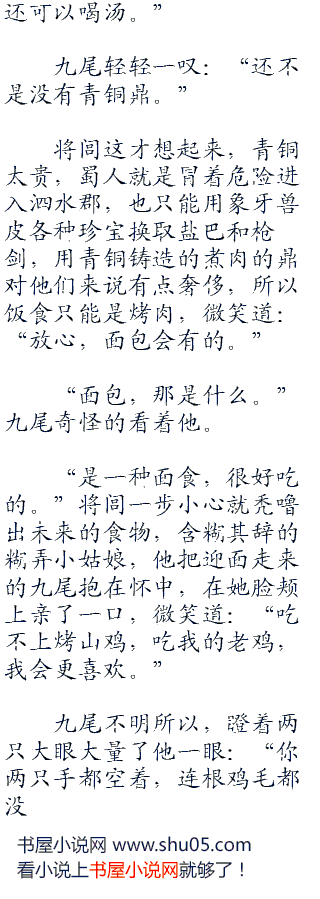 还可以喝汤。”
九尾轻轻一叹：“还不
是没有青铜鼎。”
将闾这才想起来，青铜
太贵，蜀人就是冒着危险进
入泗水郡，也只能用象牙兽
皮各种珍宝换取盐巴和枪
剑，用青铜铸造的煮肉的鼎
对他们来说有点奢侈，所以
饭食只能是烤肉，微笑道：
“放心，面包会有的。”
“面包，那是什么。”
九尾奇怪的看着他。
“是一种面食，很好吃
的。”将闾一步小心就秃噜
出未来的食物，含糊其辞的
糊弄小姑娘，他把迎面走来
的九尾抱在怀中，在她脸颊
上亲了一口，微笑道：“吃
不上烤山鸡，吃我的老鸡，
我会更喜欢。”
九尾不明所以，瞪着两
只大眼大量了他一眼：“你
两只手都空着，连根鸡毛都
没
书屋小说网 www.shu05.com
看小说上书屋小说网就够了！